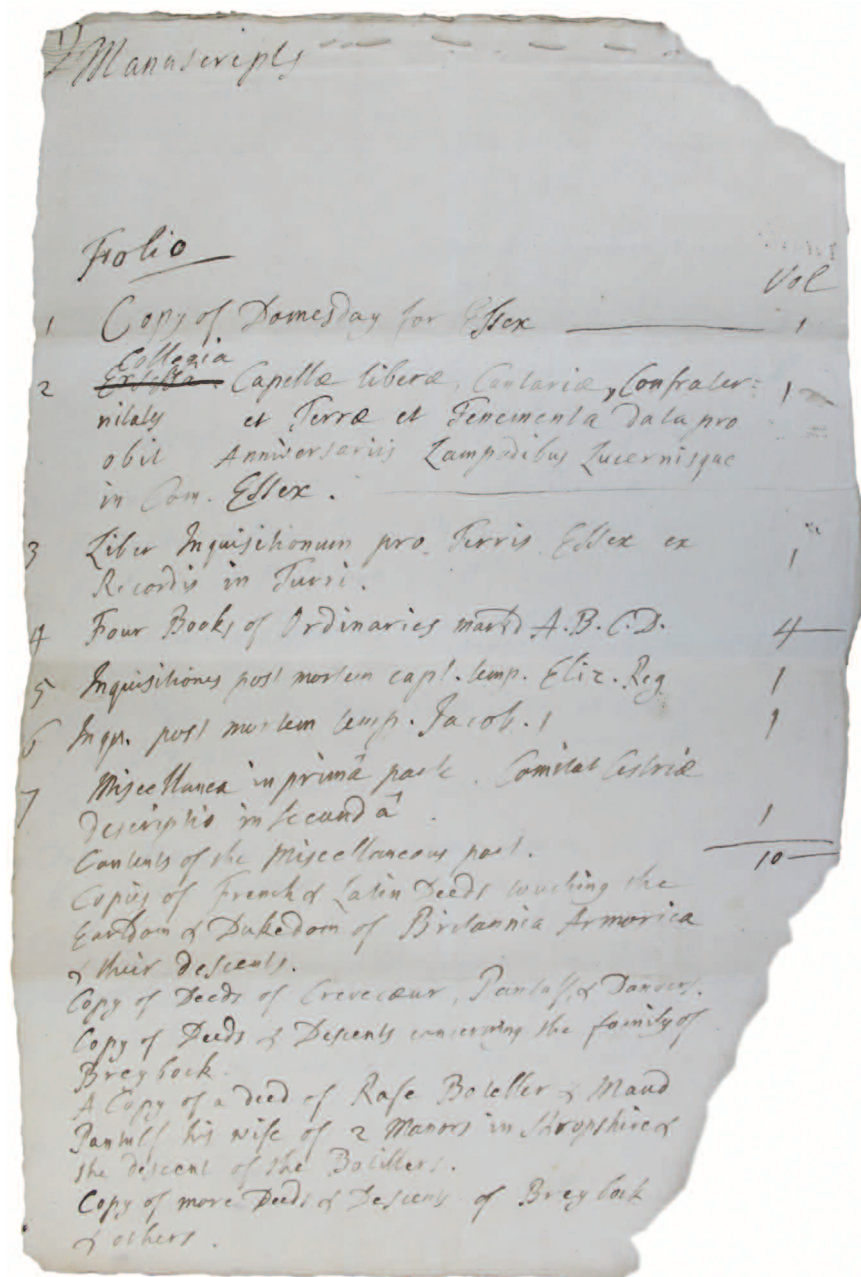 Manuscripts
Folio
Vol
1 Copy of Domesday for Essex 1
Collegia
2 Capellæ liberæ, Cantariæ, Confrater= 1
nitaty et Terræ et Tenementa data pro
obit Anniversariis Lampadibus Lucernisque
in Com. Essex.
3 Liber Inquisitionum pro Terris Essex ex
Recordis in Turri. 1
4 Four Books of Ordinaries markd A.B.C.D. 4
5 Inquisitiones post mortem capt. temp. Eliz. Reg 1
6 Inqu. post mortem temp. Jacob. 1 1
7 Miscellanea in primâ parte. Comitat Cestriæ
Descriptio in secundâ. 1
Contents of the Miscellaneous part. 10
Copies of French & Latin Deeds touching the
Earldom & Dukedom of Britannia Armorica
& their descents.
Copy of Deeds of Crevecœur, Pantulf, & Danvers.
Copy of Deeds & Descents concerning the family of
Breybock.
A Copy of a deed of Rafe Boteller & Maud
Pantulf his wife of 2 Manors in Shropshire &
the descent of the Botillers.
Copy of more Deeds & Descents of Breybock
& others.